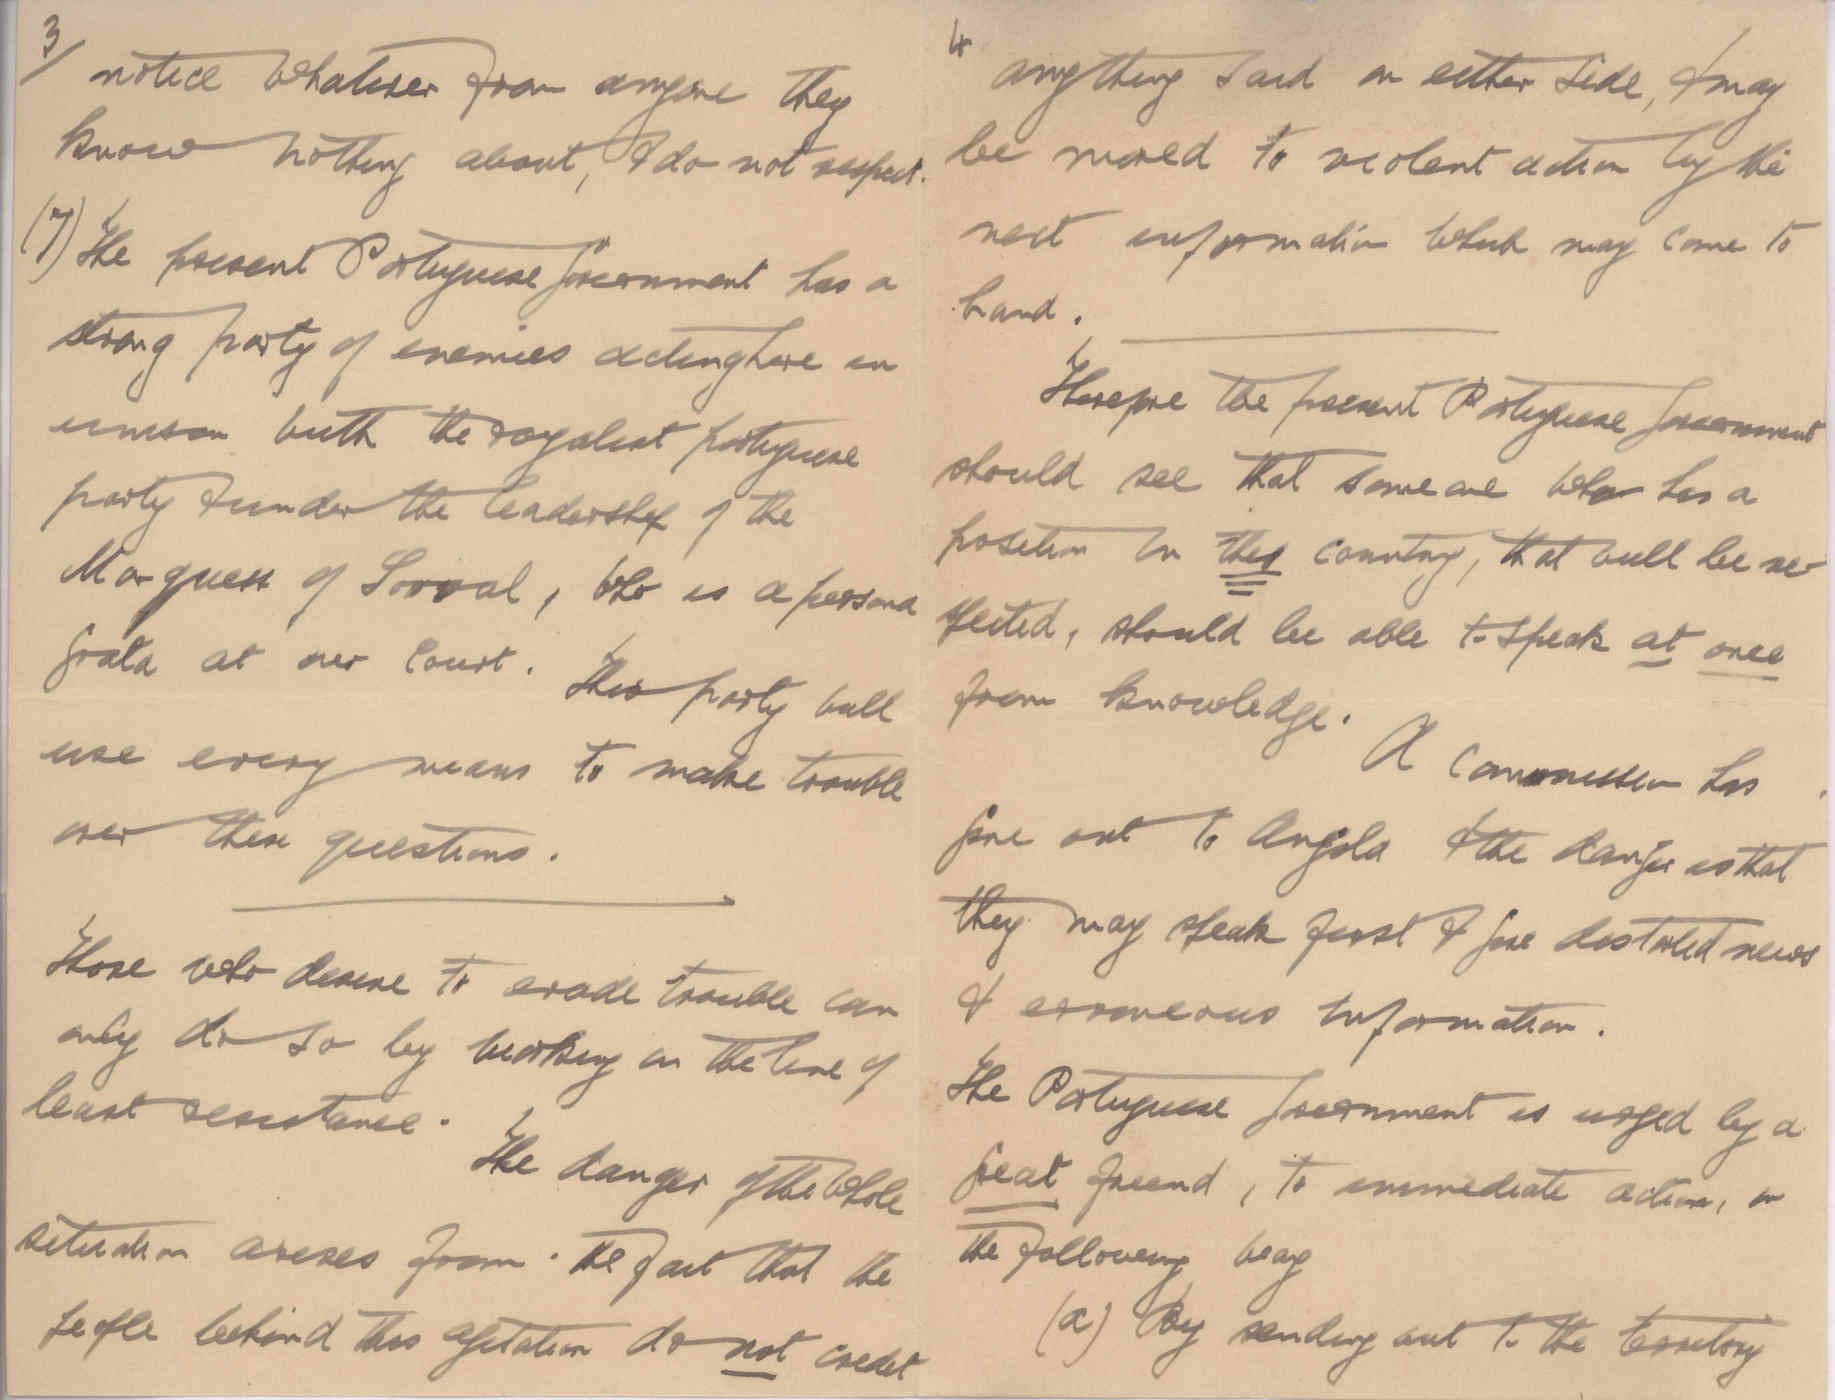 3/
notice whatever from anyone they
know nothing about, & do not respect.
(7) The present Portuguese Government has a
strong party of enemies acting here in
unison with the royalist portuguese
party & under the leadership of the
Marquess of Soveral, who is a persona
grata at our Court. This party will
use every means to make trouble
over these questions.
Those who desire to evade trouble can
only do so by working on the line of
least resistance.
The danger of the whole
situation arises from the fact that the
people behind this agitation do not credit
4
anything said on either side, & may
be moved to violent action by the
next information which may come to
hand.
Therefore the present Portuguese Government
should see that some one who has a
position in this country, that will be re-
spected, should be able to speak at once
from knowledge.
A Commission has
gone out to Angola & the danger is that
they may speak first & give distorted news
& erroneous information.
The Portuguese Government is urged by a
great friend, to immediate action, in
the following way
(a) By sending out to the territory